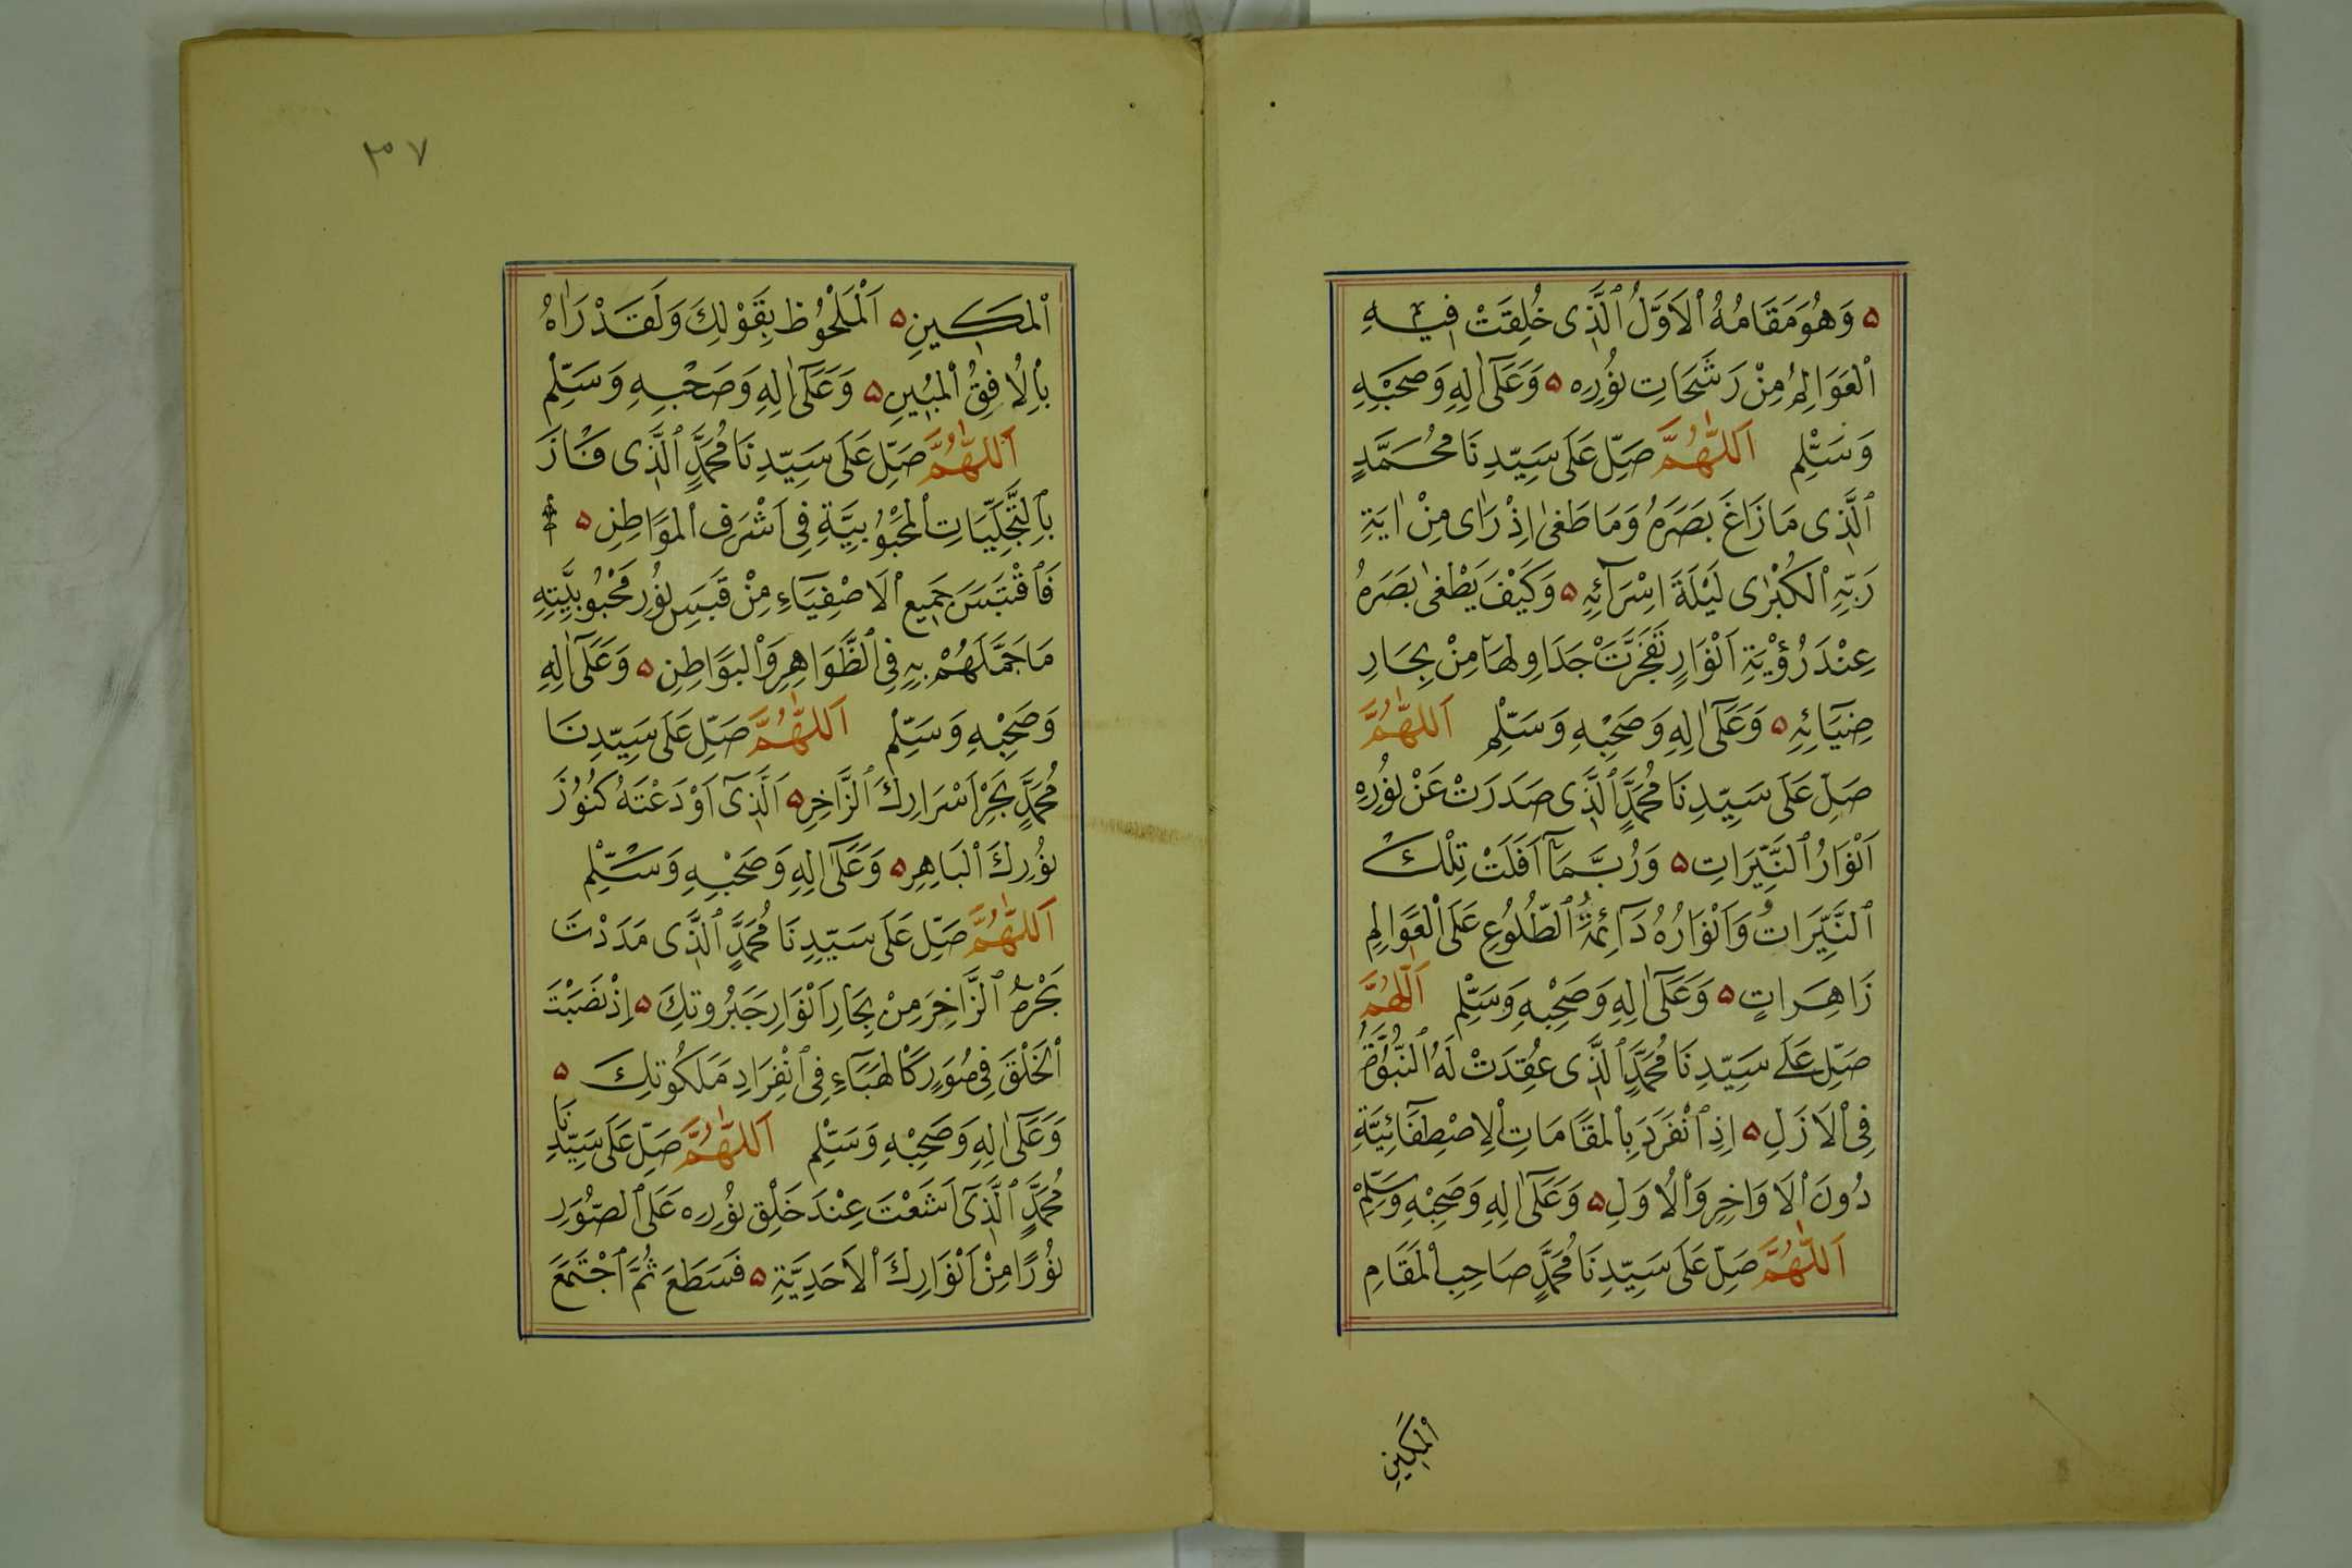 ۵ وَهُوَ مَقَامُهُ الْاَوَّلُ الَّذِى خُلِقَتْ فِيهِ
الْعَوَالِمُ مِنْ رَشَحَاتِ نُورِه ۵ وَعَلَىٰٓ اٰلِهِ وَصَحْبِهِ
وَسَلِّمْ اَللّٰهُمَّ صَلِّ عَلَى سَيِّدِنَا مُحَمَّدٍ
الَّذِى مَا زَاغَ بَصَرُهُ وَمَا طَغىٰ اِذْ رَاٰى مِنْ اٰيَةِ
رَبِّهِ الْكُبْرٰى لَيْلَةَ اِسْرَآئِهِ ۵ وَكَيْفَ يَطْغىٰ بَصَرُهُ
عِنْدَ رُؤْيَةِ اَنْوَارٍ تَفَجَّرَتْ جَدَاوِلُهَا مِنْ بِحَارِ
ضِيَآئِهِ ۵ وَعَلَىٰٓ اٰلِهِ وَصَحْبِهِ وَسَلِّمْ اَللّٰهُمَّ
صَلِّ عَلَى سَيِّدِنَا مُحَمَّدٍ الَّذِى صَدَرَتْ عَنْ نُورِهِ
اَنْوَارُ النَّيِّرَاتِ ۵ وَرُبَّمَآ اَفَلَتْ تِلْكَ
النَّيِّرَاتُ وَاَنْوَارُهُ دَآئِمَةُ الطُّلُوعِ عَلَى الْعَوَالِمِ
زَاهِرَاتٍ ۵ وَعَلَىٰٓ اٰلِهِ وَصَحْبِهِ وَسَلِّمْ اَللّٰهُمَّ
صَلِّ عَلَى سَيِّدِنَا مُحَمَّدٍ الَّذِى عُقِدَتْ لَهُ النُّبُوَّةُ
فِى الْاَزَلِ ۵ اِذِ انْفَرَدَ بِالْمَقَامَاتِ الْاِصْطِفَآئِيَّةِ
دُونَ الْاَوَاخِرِ وَالْاُوَلِ ۵ وَعَلَىٰٓ اٰلِهِ وَصَحْبِهِ وَسَلِّمْ
اَللّٰهُمَّ صَلِّ عَلَى سَيِّدِنَا مُحَمَّدٍ صَاحِبِ الْمَقَامِ
الْمَكِينِ
٣٧
الْمَكِينِ ۵ اَلْمَلْحُوظِ بِقَوْلِكَ وَلَقَدْ رَاٰهُ
بِالْاُفِقُ الْمُبِينِ ۵ وَعَلَىٰٓ اٰلِهِ وَصَحْبِهِ وَسَلِّمْ
اَللّٰهُمَّ صَلِّ عَلَى سَيِّدِنَا مُحَمَّدٍ الَّذِى فَازَ
بِالتَّجَلِّيَاتِ الْمَحْبُوبِيَّةِ فِى اَشْرَفِ الْمَوَاطِنِ ۵
فَاقْتَبَسَ جَمِيع الْاَصْفِيَآءِ مِنْ قَبَسِ نُورِ مَحْبُوبِيَّتِهِ
مَا جَمَّلَهُمْ بِهِ فِى الظَّوَاهِرِ وَالْبَوَاطِنِ ۵ وَعَلَىٰٓ اٰلِهِ
وَصَحْبِهِ وَسَلِّمْ اَللّٰهُمَّ صَلِّ عَلَى سَيِّدِنَا
مُحَمَّدٍ بَحْرِ اَسْرَارِكَ الزَّاخِرِ ۵ اَلَّذِىٓ اَوْدَعْتَهُ كُنُوزَ
نُورِكَ الْبَاهِرِ ۵ وَعَلَىٰٓ اٰلِهِ وَصَحْبِهِ وَسَلِّمْ
اَللّٰهُمَّ صَلِّ عَلَى سَيِّدِنَا مُحَمَّدٍ الَّذِى مَدَدْتَ
بَحْرَهُ الزَّاخِرَ مِنْ بِحَارِ اَنْوَارِ جَبَرُوتِكَ ۵ اِذْ نَصَبْتَ
الْخَلْقَ فِى صُوَرٍ كَالْهَبَآءِ فِى انْفِرَادِ مَلَكُوتِكَ ۵
وَعَلَىٰٓ اٰلِهِ وَصَحْبِهِ وَسَلِّمْ اَللّٰهُمَّ صَلِّ عَلَى سَيِّدِنَا
مُحَمَّدٍ الَّذِىٓ اَشَعْتَ عِنْدَ خَلْقِ نُورِه عَلَى الصُّوَرِ
نُورًا مِنْ اَنْوَارِكَ الْاَحَدِيَّةِ ۵ فَسَطَعَ ثُمَّ اجْتَمَعَ